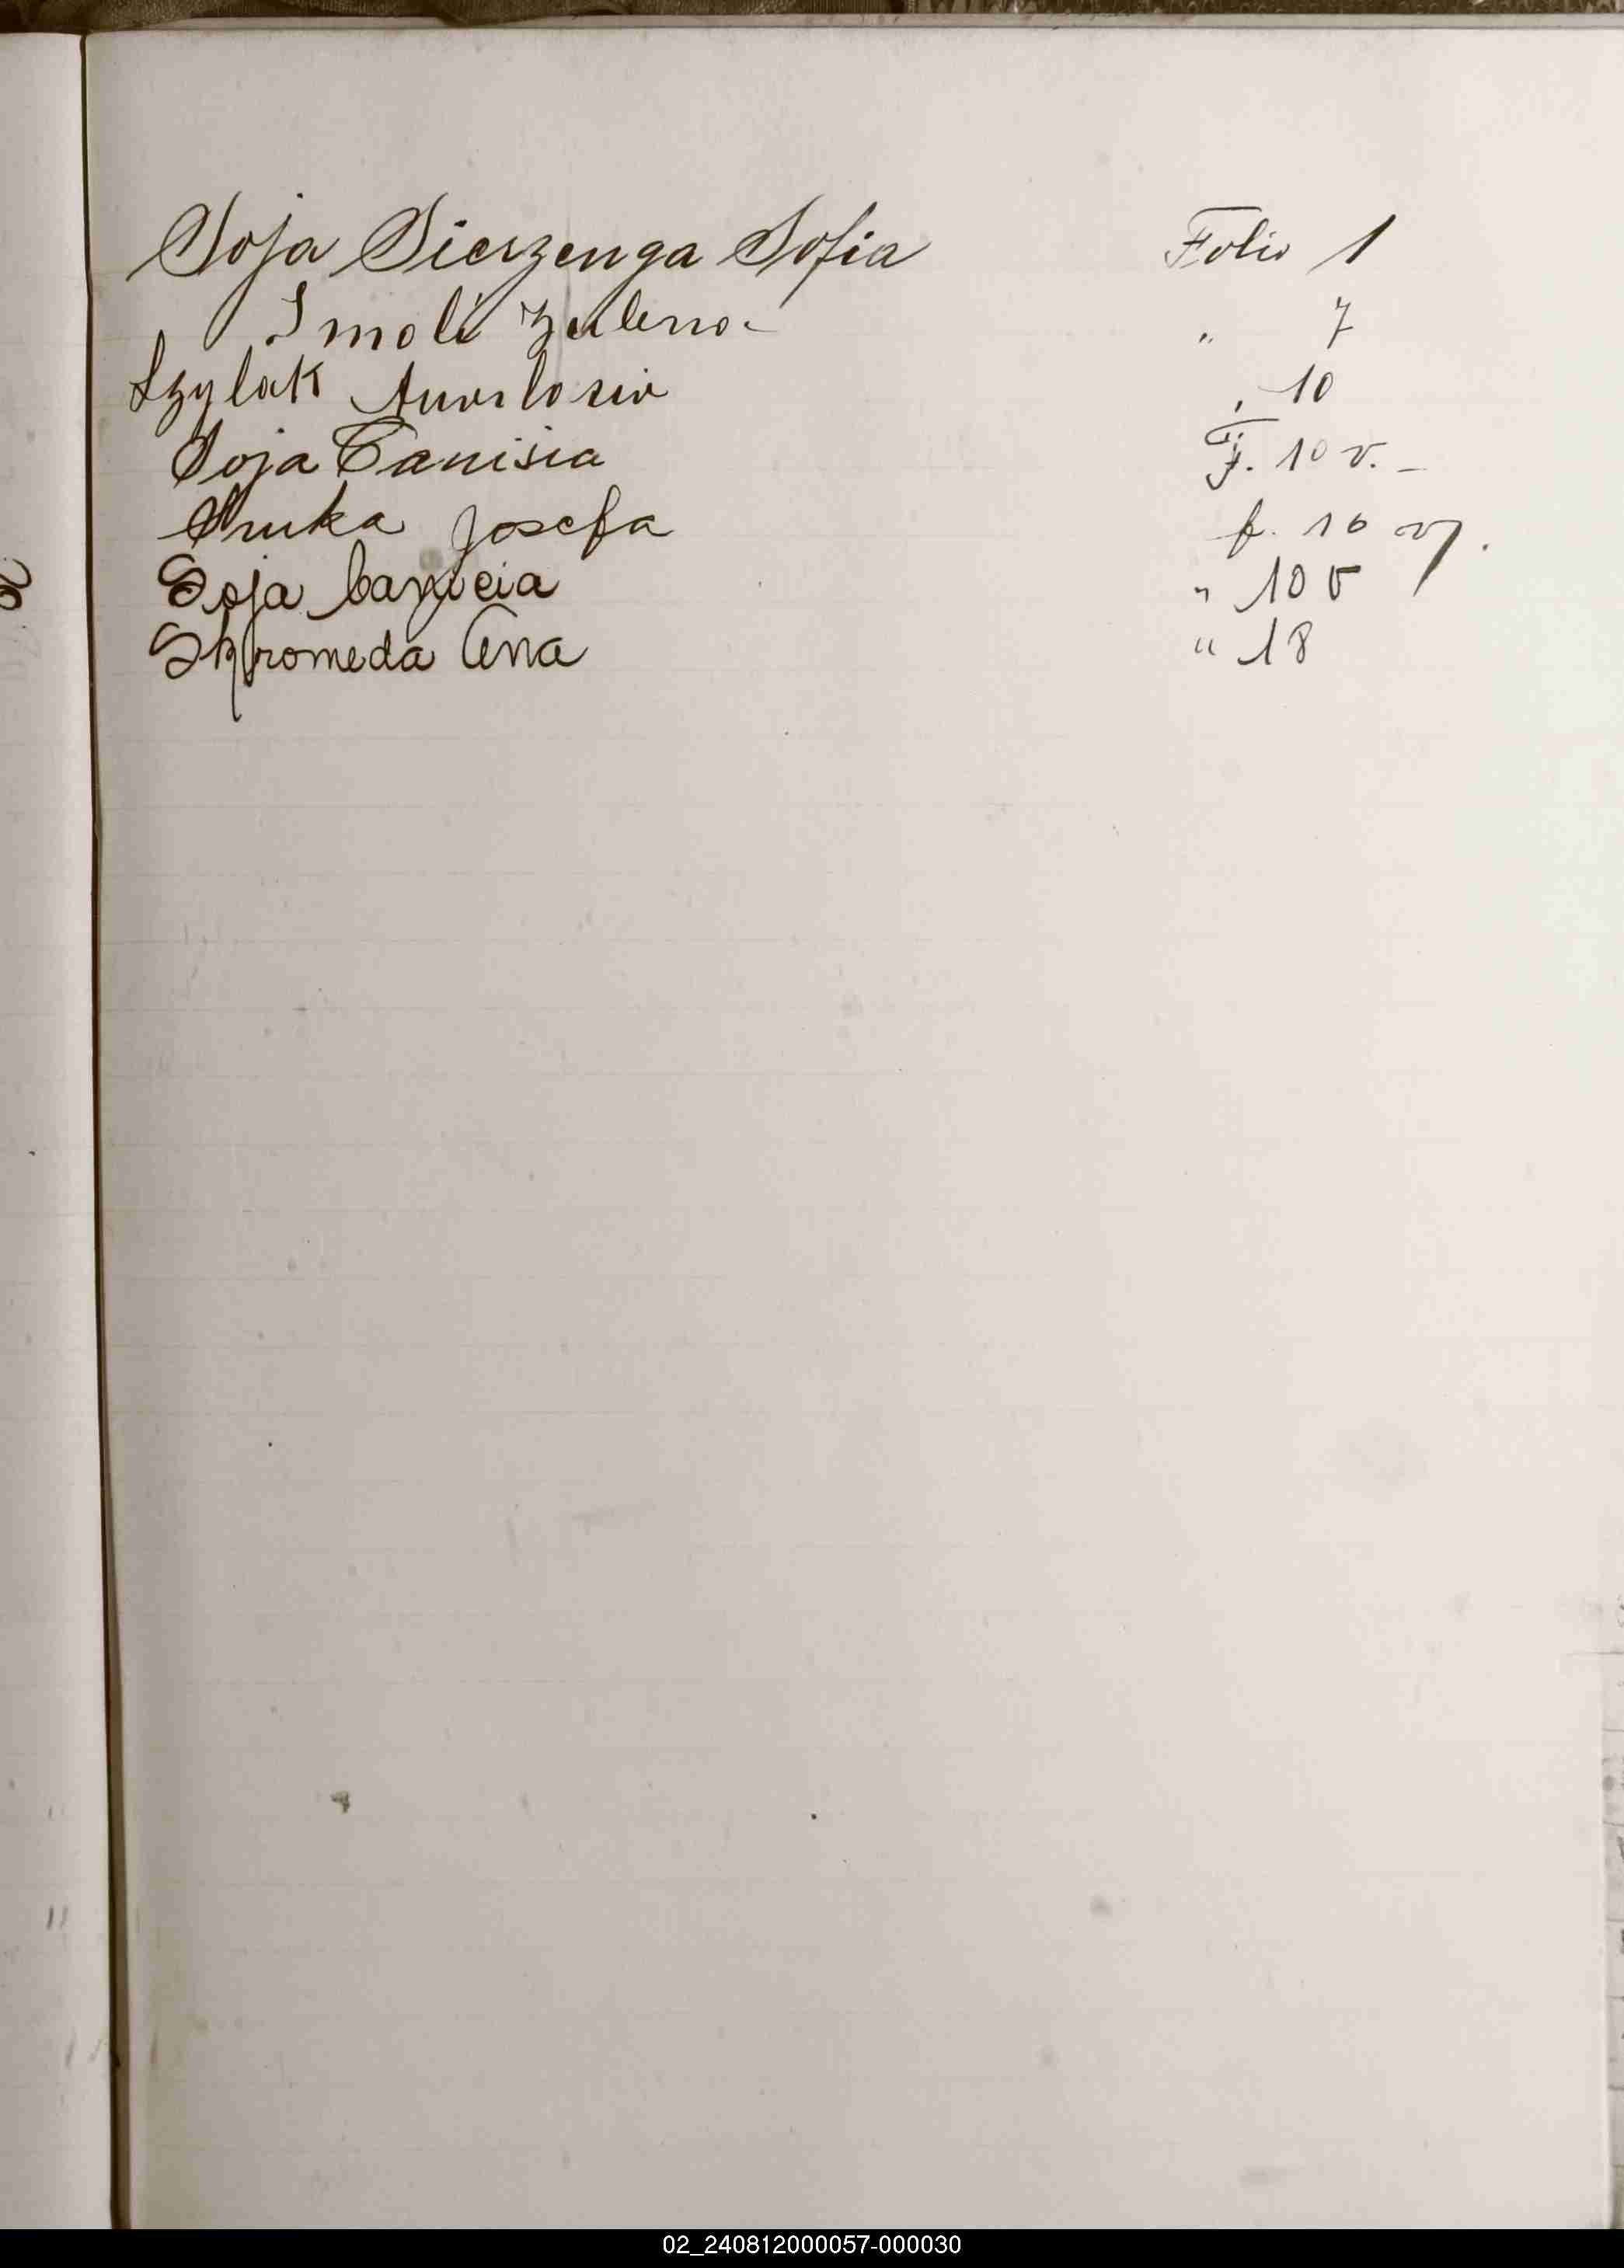 Soja Sierzenga Sofia Folio 1
Smoli " 7
Szylak " 10
Soja Canisia F. 10 v. -
Sruka Josefa f. 10 v.
Soja Canicia " 10 v
Skromeda Ana " 18
02_240812000057-000030